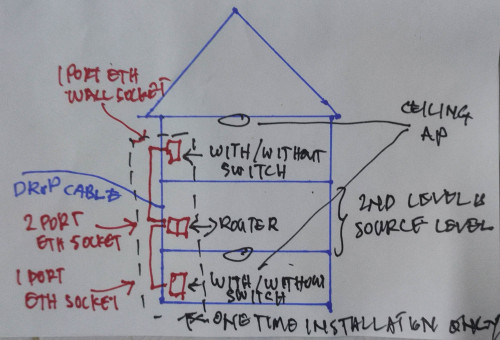 1 PORT ETH
WALL SOCKET
CEILING
AP
WITH/WITHOUT
SWITCH
DROP CABLE
2ND LEVEL IS
SOURCE LEVEL
2 PORT
ETH SOCKET
ROUTER
1 PORT
ETH SOCKET
WITH/WITHOUT
SWITCH
ONE TIME INSTALLATION ONLY